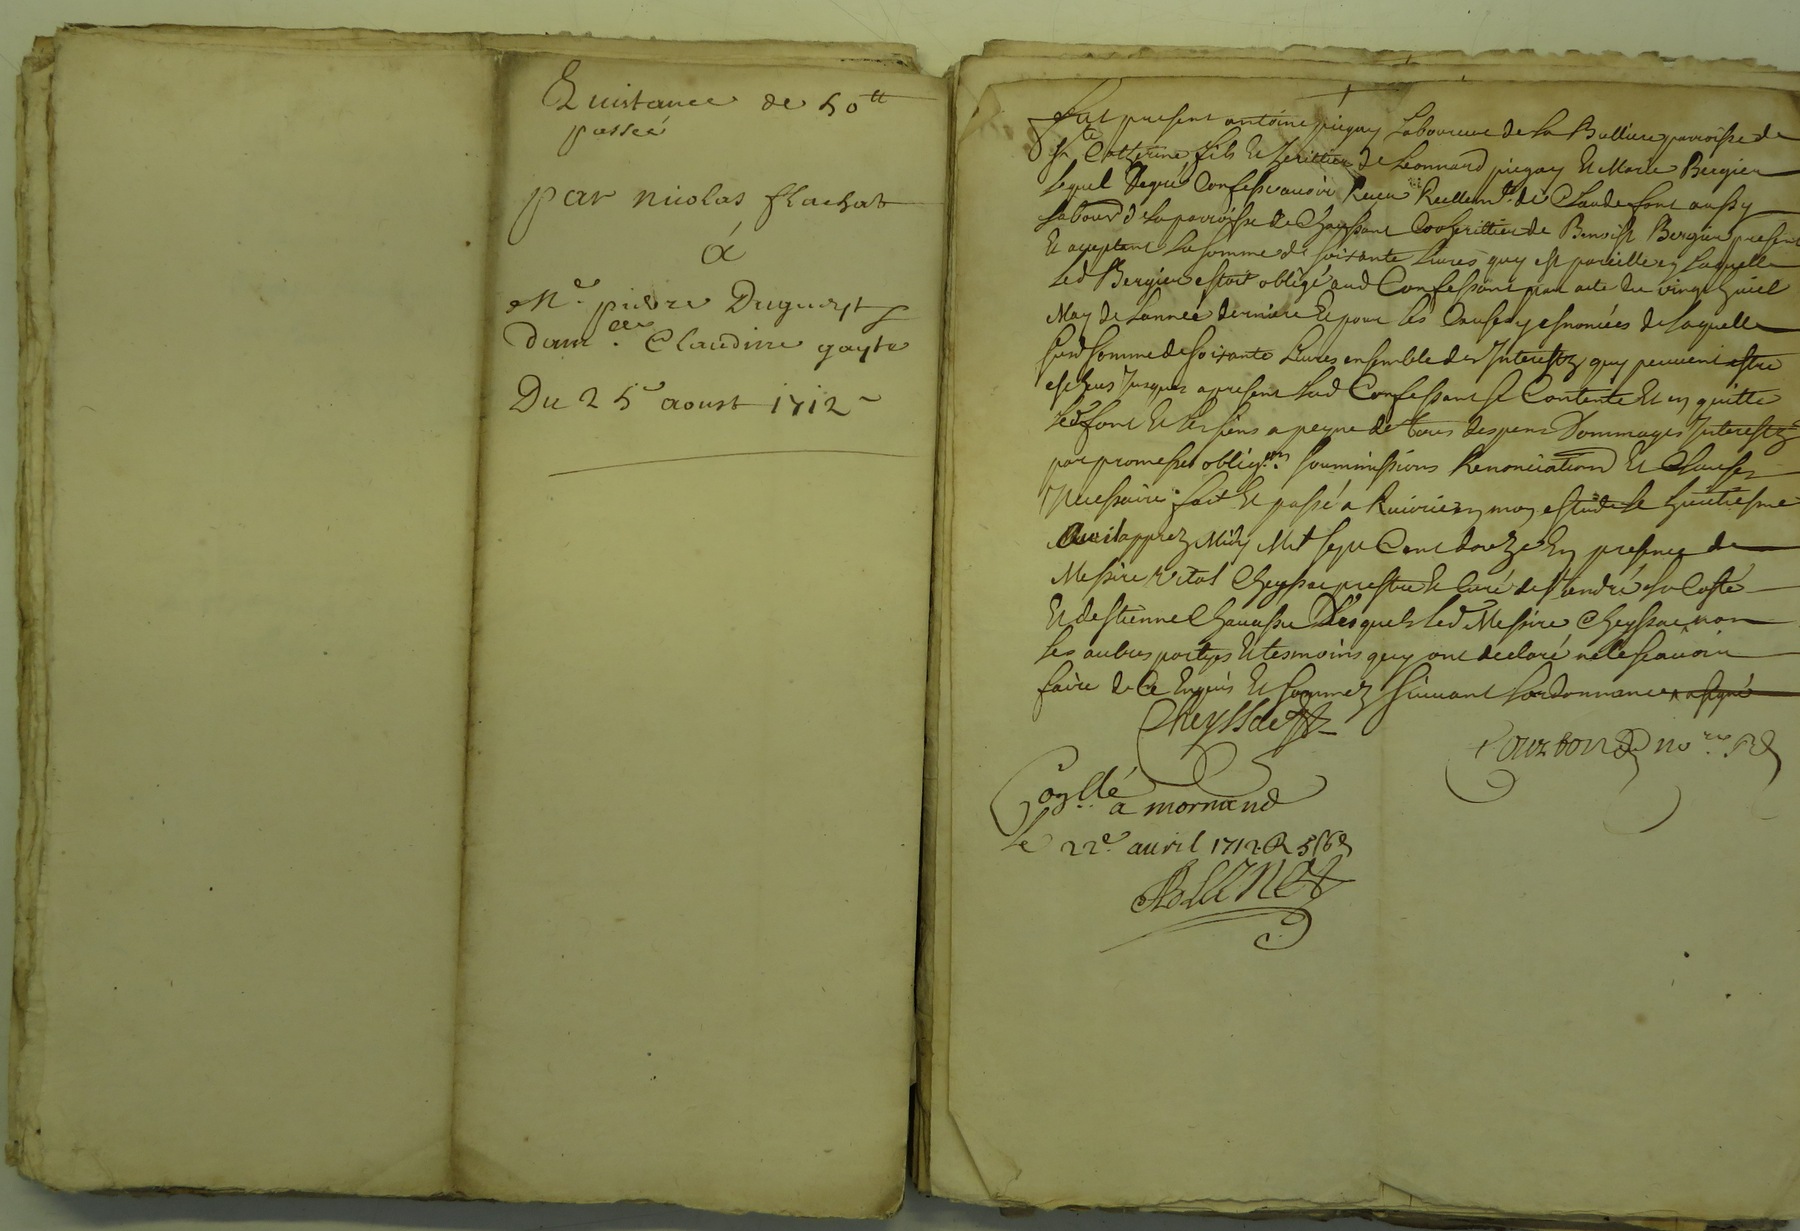 Quistance de 50lt
passée
par nicolas flachat
à
Me. pierre Duguest
Damelle Claudine gayte
Du 25e aoust 1712
fut present antoine pigay Laboureur de la Bulliere parroisse de
ste Catherine fils et heritier de Leonnard pigay et Marie Bergier
lequel de gré Confesse avoir Receu Reellemt. de Claude font aussy
Labour d la parroisse de Chaussant Cooheritier de Benoist Bergier present
et aceptant la somme de soixante Livres quy est pareille en laquelle
led Bergier estoit obligé aud Confessant par acte du vingt huict
May de Lannée derniere et pour les Causes y esnoncées de laquelle
susd somme de soixante Livres ensemble des Interestz quy peuvent estre
escheus Jusques a present led Confessant se Contente et en quitte
led font et les siens a peyne de tous despens Dommages Interestz
par promesses obligons soummissions Renonciation et Clauses
Necessaire. fait et passé a Riverie en mon estude le huictiesme
Avril apprez Midy Mil sept Cent douze En presence de
Messire Vital Cheyssac prestre et Curé de st andré la Coste
et destienne Chavassu Desquels led Messire Cheyssac non
les autres partyes et tesmoins quy ont declaré ne le scavoir
faire de Ce Enquis et sommez suivant Lordonnance a signé
Cheyssac
Courbon nore. R
Conllé
a mornand
le 22e. avril 1712 R 5s 6d
Blanc